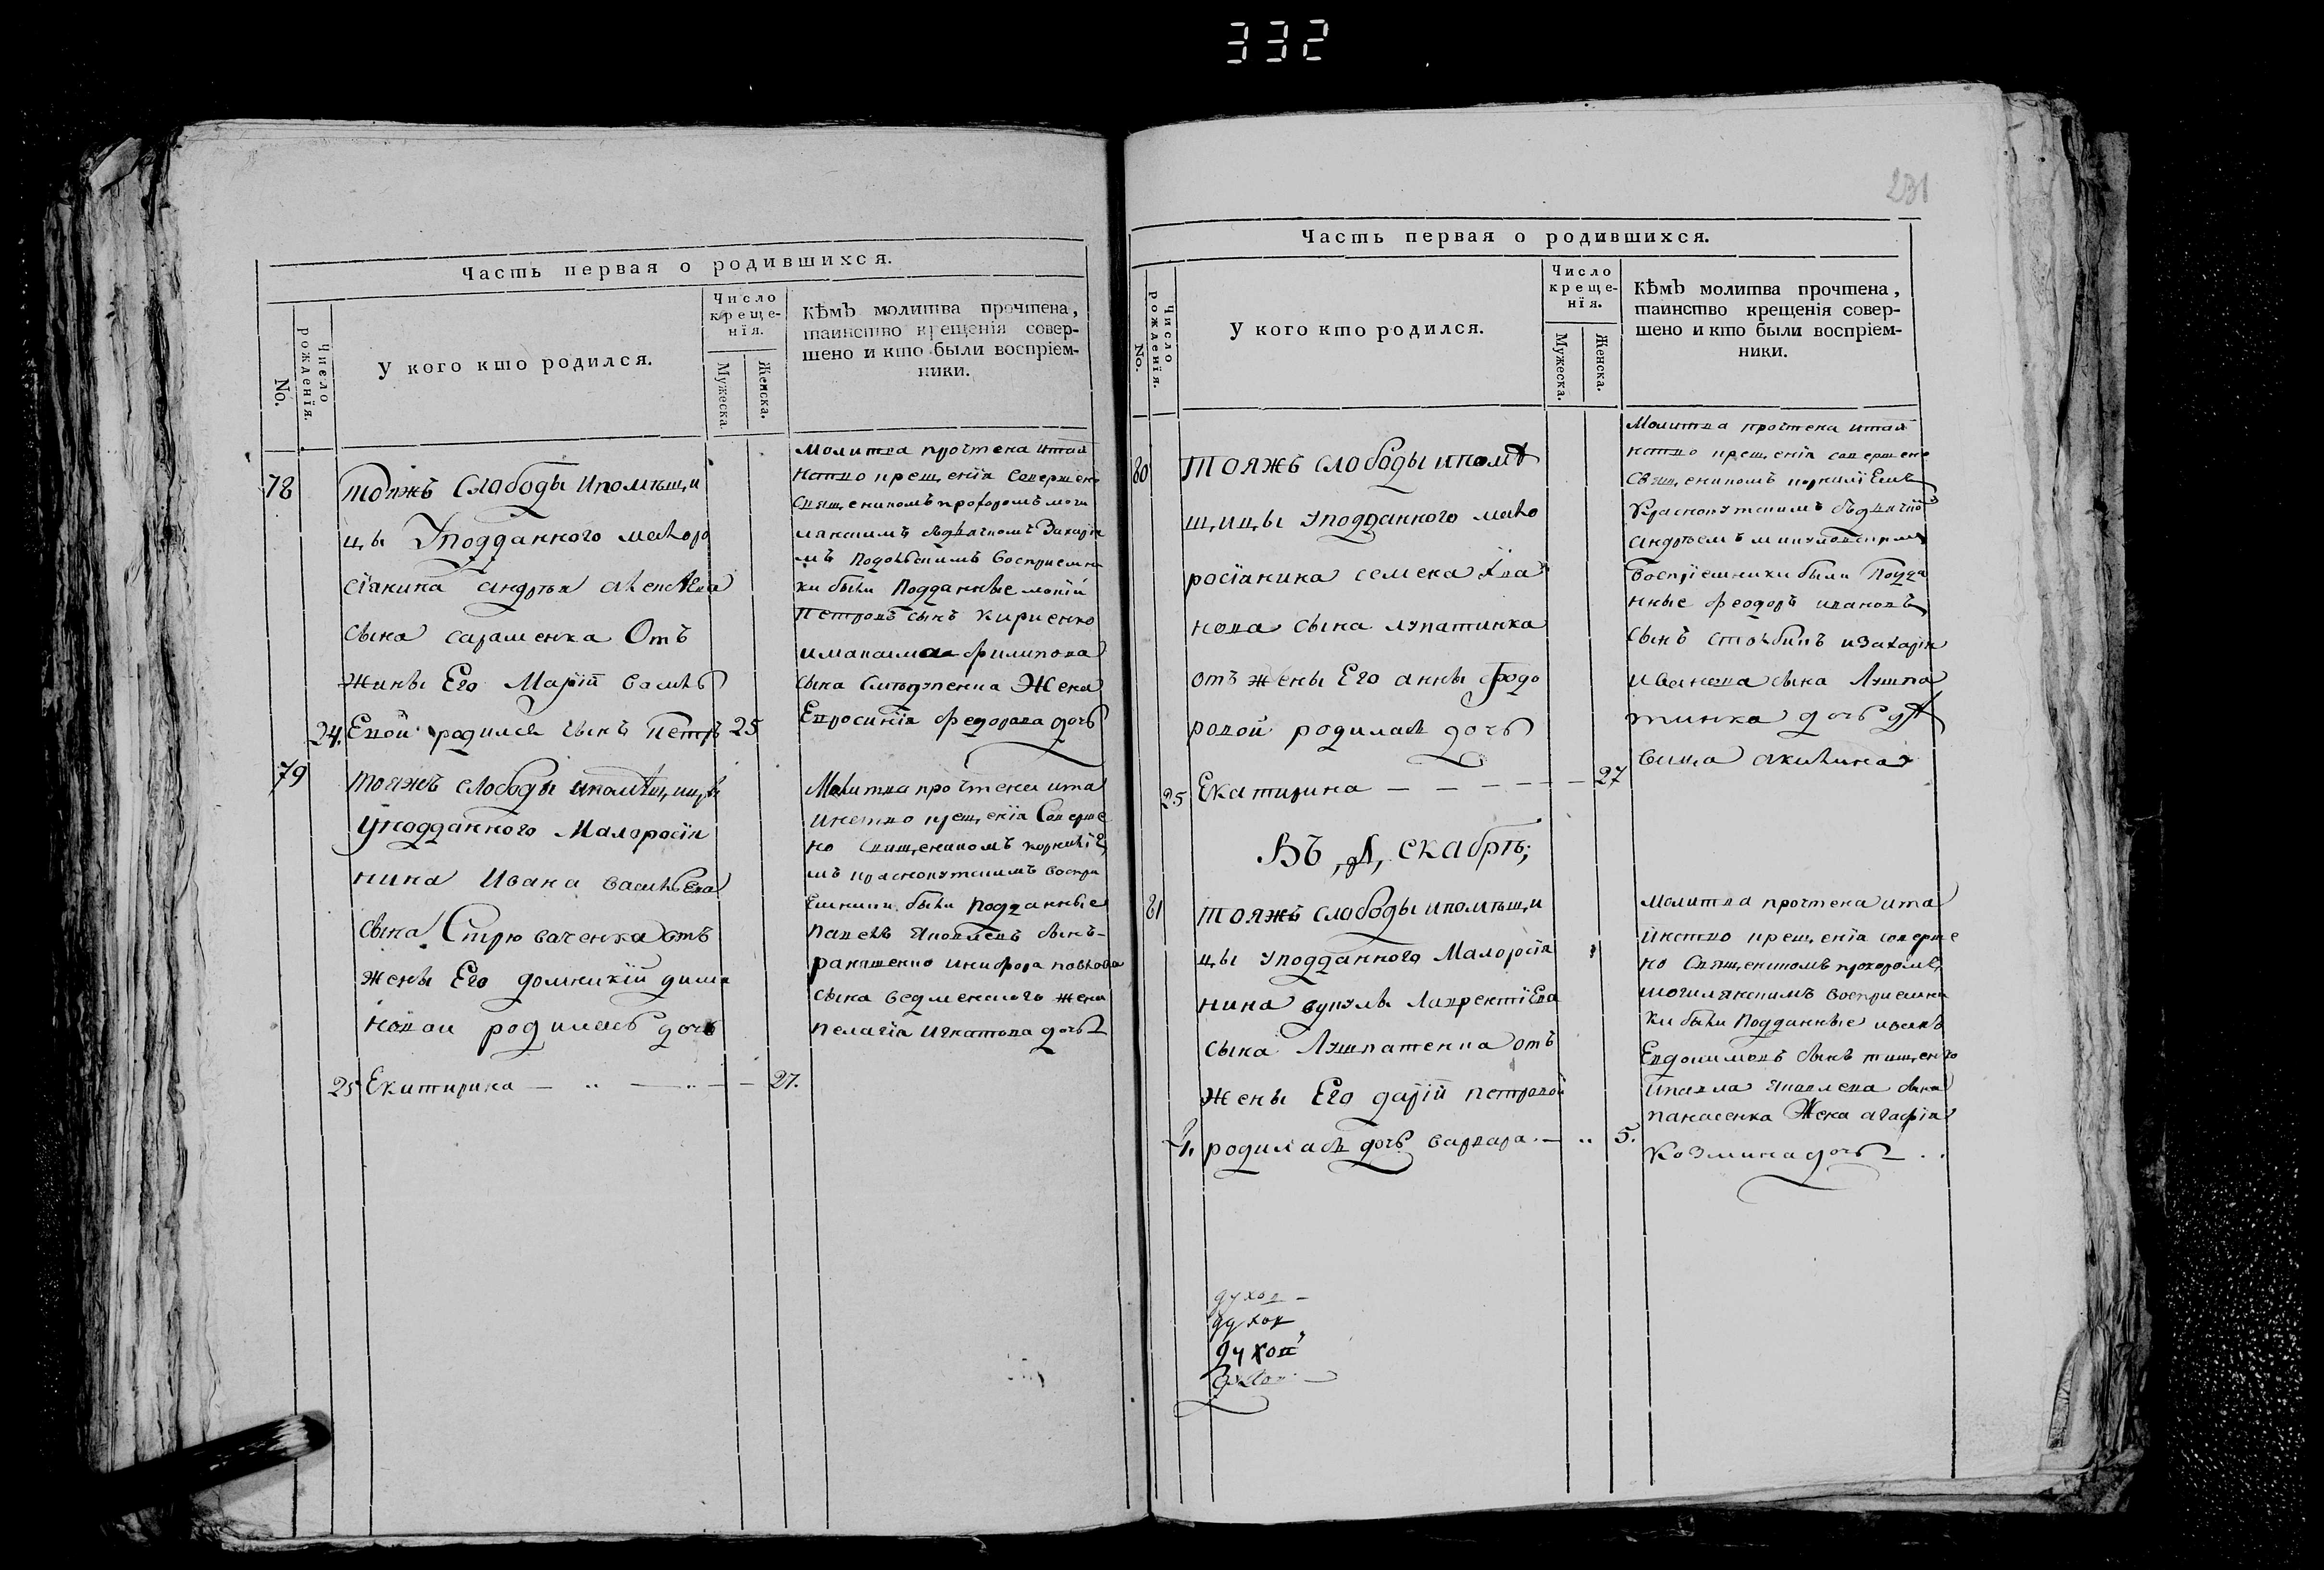 332
Часть первая о родившихся.
No.
Число рожденїя.
У кого кто родился.
Число
креще-
нїя.
Мужеска.
Женска.
Кѣмъ молитва прочтена,
таинство крещенія совер-
шено и кто были воспріем-
ники.
78
тояжъ Слободы ипомѣщи
цы Уподданного малоро
сїянина андрѣя алексѣева
сына сарашенка Отъ
жины Его Марїй василь
24. Евой родился сынъ петръ 25
Молитва прочтена итаи
нство крещенїя Соверше
Священикомъ прохоромъ моги
лянскимъ здьячкомъ Захарїе
мъ Подольскимъ восприемни
ки были Подданные
петровъ сынъ кириенко
филипова
сына Жена
Евросинїя федорова дочь
79
тояжъ слободы ипомѣщицы
Уподданного Малоросїя
нина Ивана васильева
сына Стрюваченка отъ
жены Его домникїй дима
новои родилась дочь
25 Екитирина — — — 27.
Молитва прочтена ита
инство крещенїя Соверше
но Священикомъ корнилїе
мъ краснокутскимъ воспри
емники были Подданные
павелъ яковлевъ сынъ
ракашенко иникфора павлова
сына жена
пелагїя игнатова дочь
231
Часть первая о родившихся.
No.
Число рожденїя.
У кого кто родился.
Число
креще-
нїя.
Мужеска.
Женска.
Кѣмъ молитва прочтена,
таинство крещенія совер-
шено и кто были воспріем-
ники.
80
тояжъ слободы ипомѣ
щицы Уподданного мало
росїянина семена ива
нова сына лупатинка
отъ жены Его анны федо
ровой родилась дочь
25 Екатирина — — — — — 27
Молитва прочтена итаи
нство крещенїя совершено
Священикомъ корнилїемъ
Краснокутскимъ
андрѣемъ
Воспрїемники были Подда
нные феодоръ ивановъ
сынъ столбинъ изахарїя
иванова сына Лушпа
тинка дочь дѣ
вица акилина
Въ Декабрѣ;
81
тояжъ слободы ипомѣщи
цы уподданного Малоросїя
нина вукулы Лаврентїева
сына Лушпатенка отъ
жены Его дарїй петровой
4. родилась дочь варвара. — .. 5.
Молитва прочтена ита
инство крещенїя соверше
но Священикомъ прохоромъ
могилянскимъ восприемни
ки были Подданные иванъ
Евдокимовъ сынъ тищенко
ипавла яковлева сына
панасенка Жена агафїя
Козмина дочь
духов
духов
духов